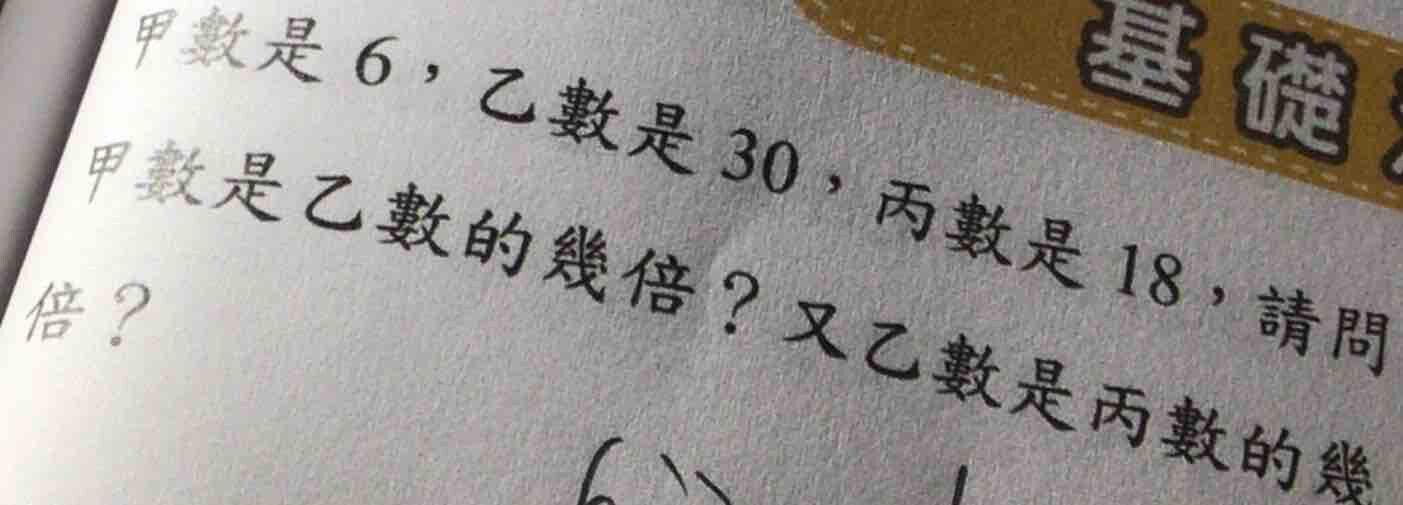 基礎
甲數是 6，乙數是 30，丙數是 18，請問
甲數是乙數的幾倍？又乙數是丙數的幾
倍？